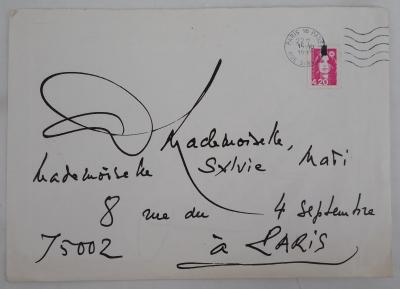 PARIS
4.20
Mademoiselle,
Mademoiselle Sylvie Mati
8 rue du 4 Septembre
75002 à PARIS